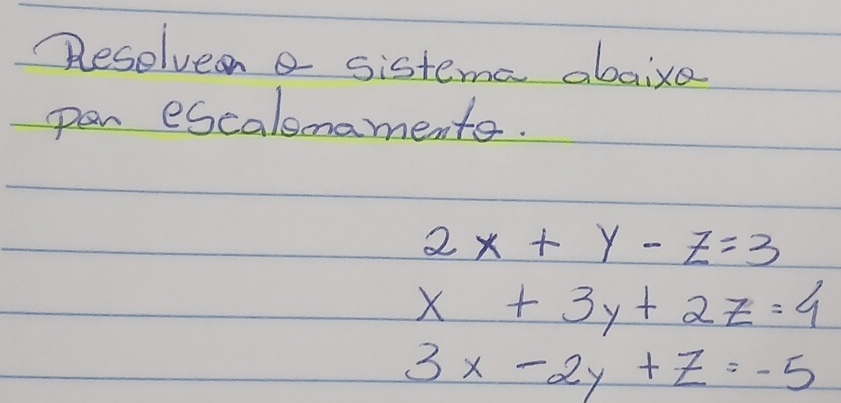 Resolver o sistema abaixo
por escalonamento.
2x + y - z = 3
x + 3y + 2z = 4
3x - 2y + z = -5